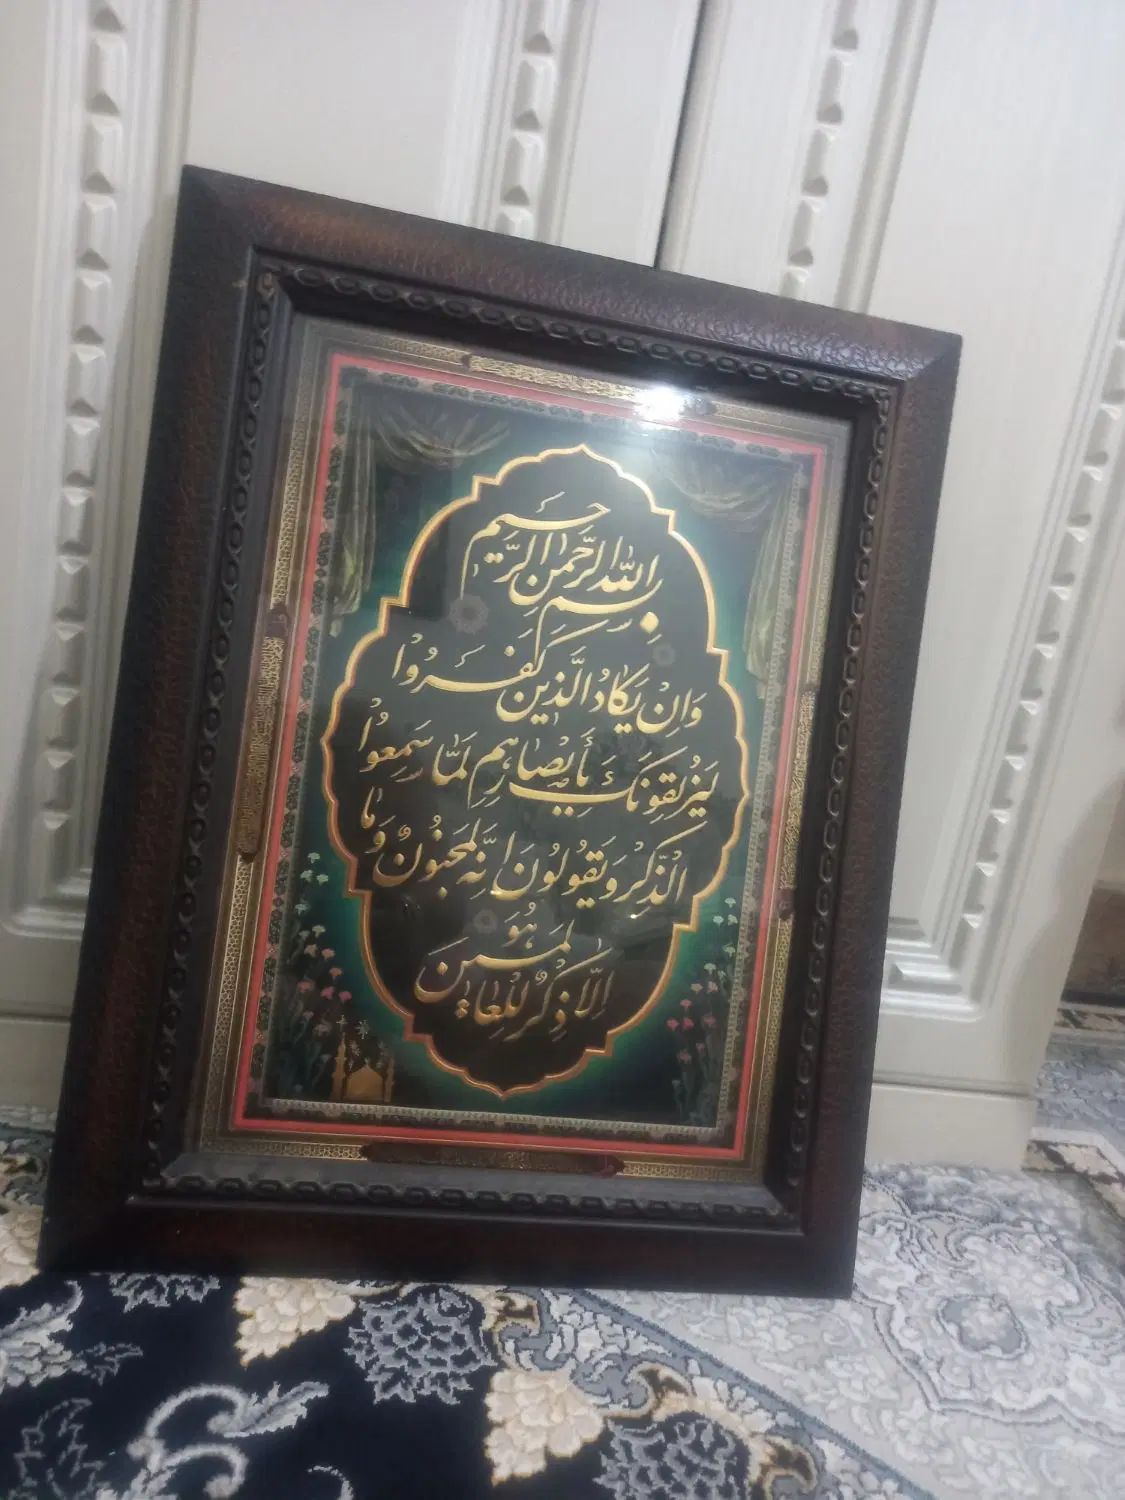 بِسْمِ اللّٰهِ الرَّحْمٰنِ الرَّحيمِ
وَاِنْ يَكادُ الَّذينَ كَفَرُوْا
لَيَزْلِقُونَكَ بِأَبْصٰارِهِمْ لَمّٰا سَمِعُوْا
الْذِّكْرَ وَيَقُولُونَ اِنَّهُ لَمَجْنُونٌ وَمٰا
هُوَ
اِلّاٰ ذِكْرٌ لِلْعٰالَمينَ